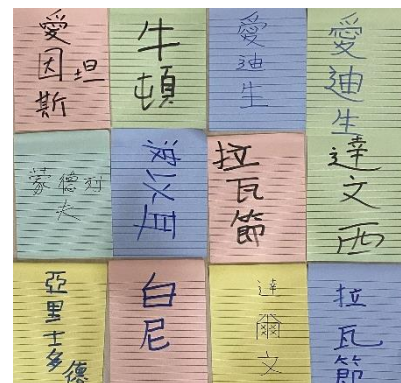 愛因斯坦
牛頓
愛迪生
愛迪生
蒙德列夫
波以耳
拉瓦節
達文西
亞里士多德
白尼
達爾文
拉瓦節